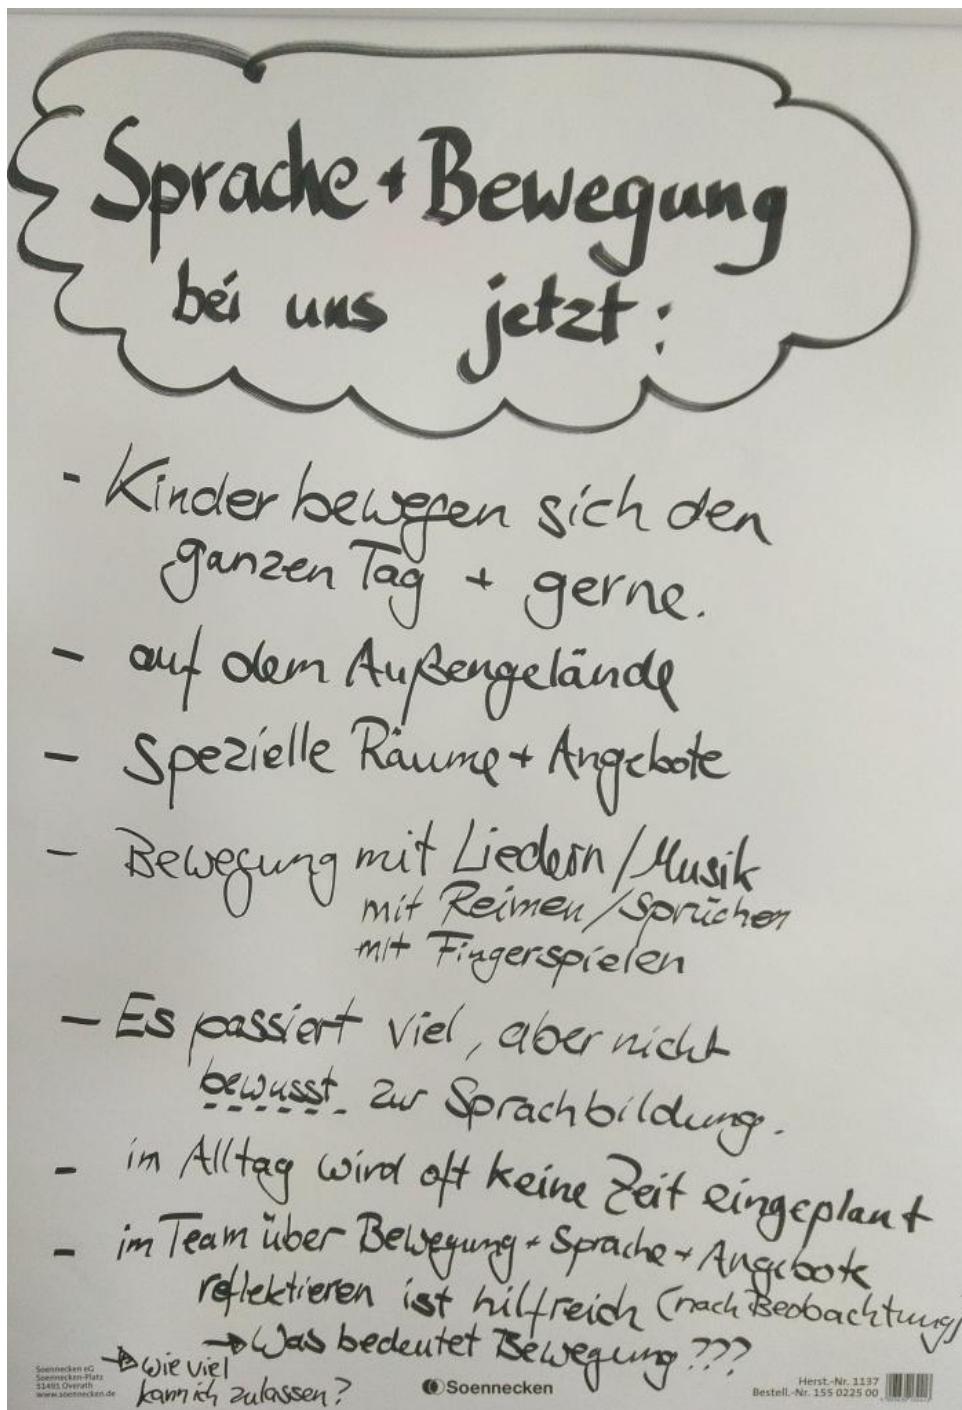 Sprache + Bewegung
bei uns jetzt:
- Kinder bewegen sich den
ganzen Tag + gerne.
- auf dem Außengelände
- spezielle Räume + Angebote
- Bewegung mit Liedern/Musik
mit Reimen/Sprüchen
mit Fingerspielen
- Es passiert viel, aber nicht
bewusst zur Sprachbildung.
- im Alltag wird oft keine Zeit eingeplant
- im Team über Bewegung + Sprache + Angebote
reflektieren ist hilfreich (nach Beobachtung)
→ Was bedeutet Bewegung???
→ wie viel
kann ich zulassen?
Soennecken eG
Soennecken-Platz
51491 Overath
www.soennecken.de
Soennecken
Herst.-Nr. 1137
Bestell.-Nr. 155 0225 00